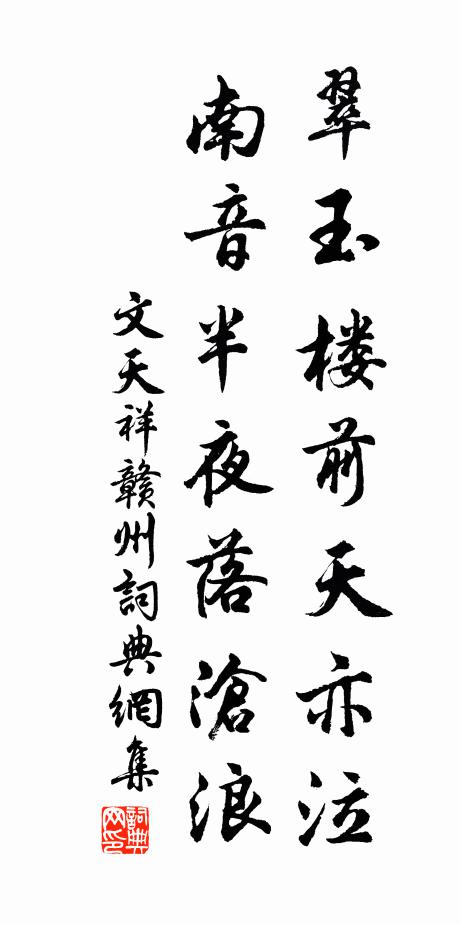 翠玉楼前天亦泣
南音半夜落滄浪
文天祥赣州詞典網集
詞典网印